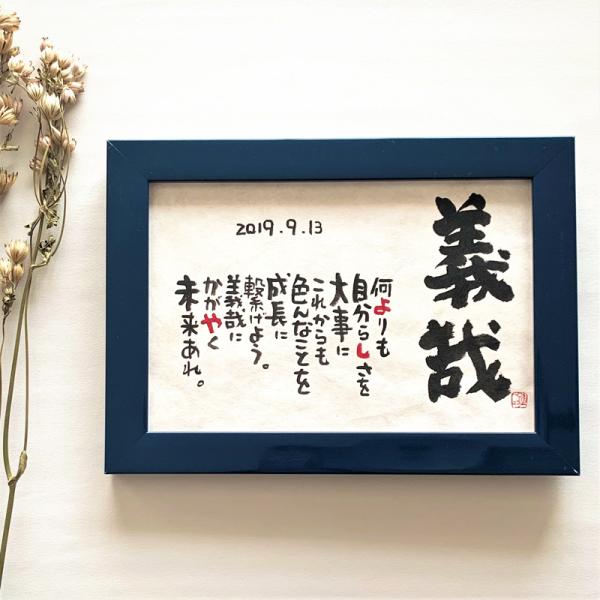 義哉
2019.9.13
何よりも
自分らしさを
大事に
これからも
色んなことを
成長に
繋げよう。
義哉に
かがやく
未来あれ。